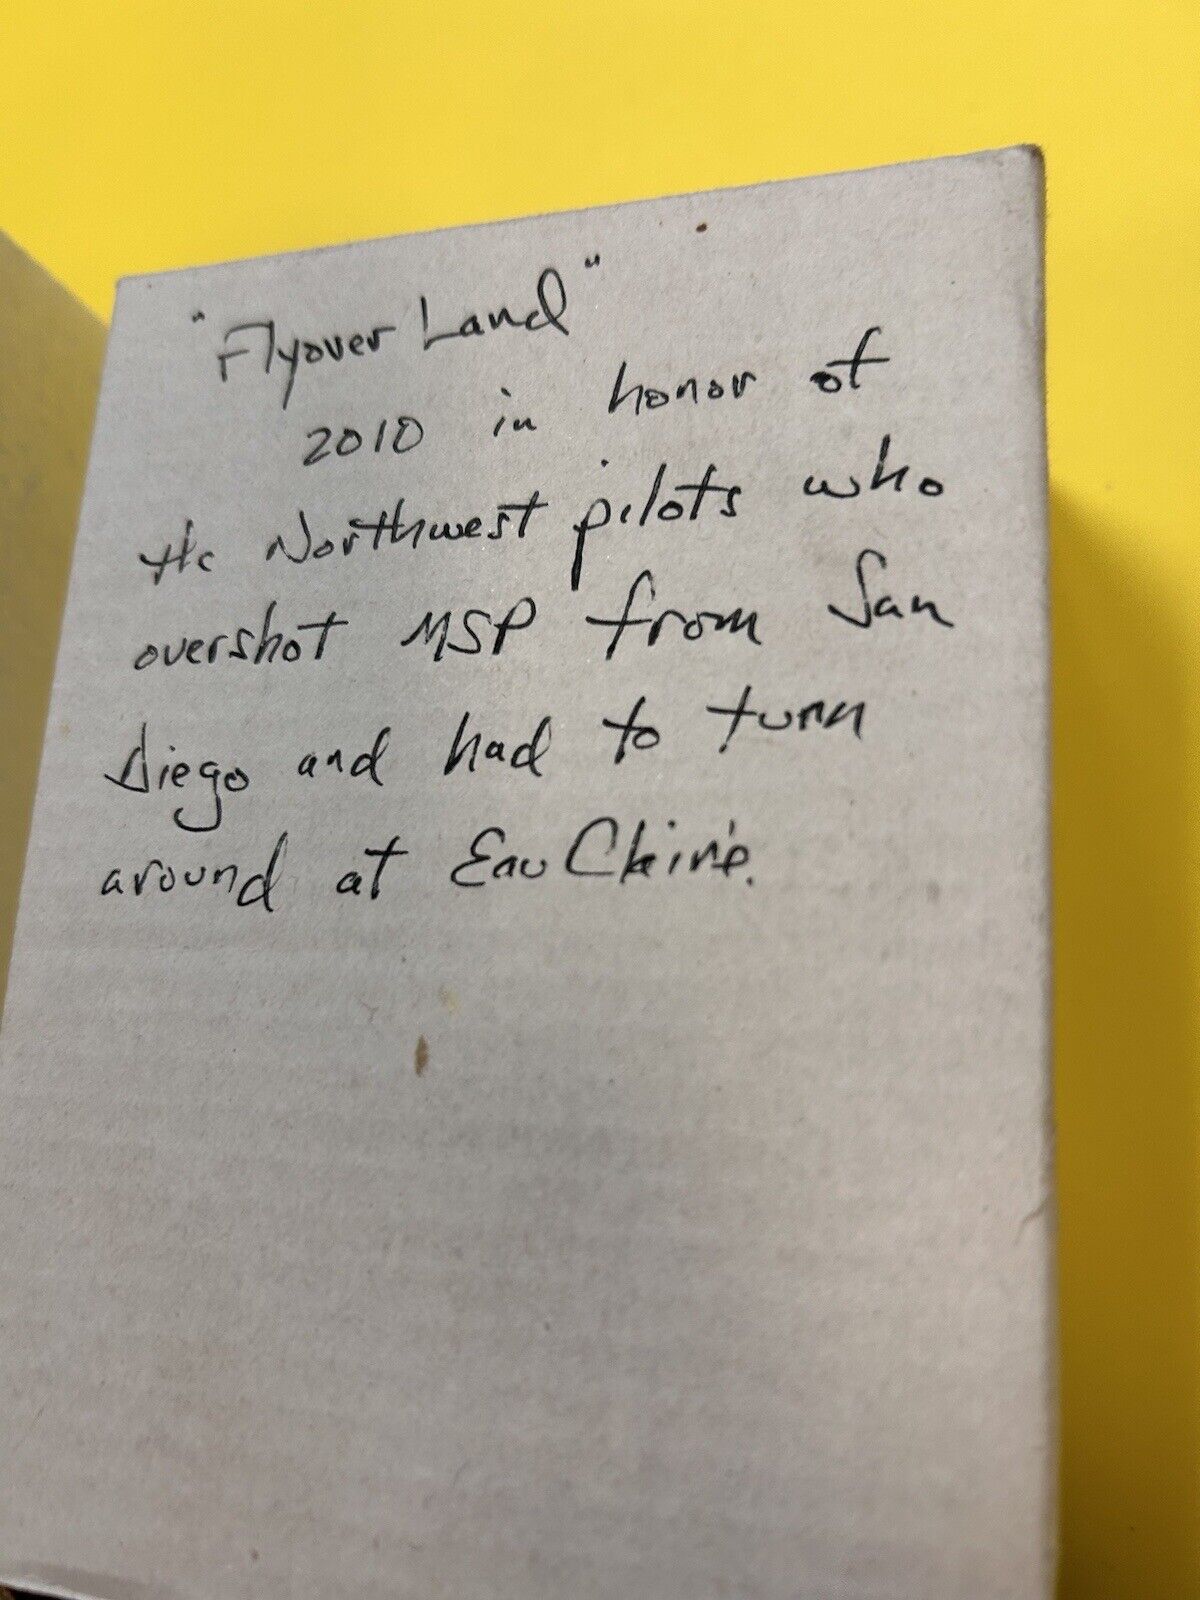 "Flyover Land"
2010 in honor of
the Northwest pilots who
overshot MSP from San
Diego and had to turn
around at Eau Claire.